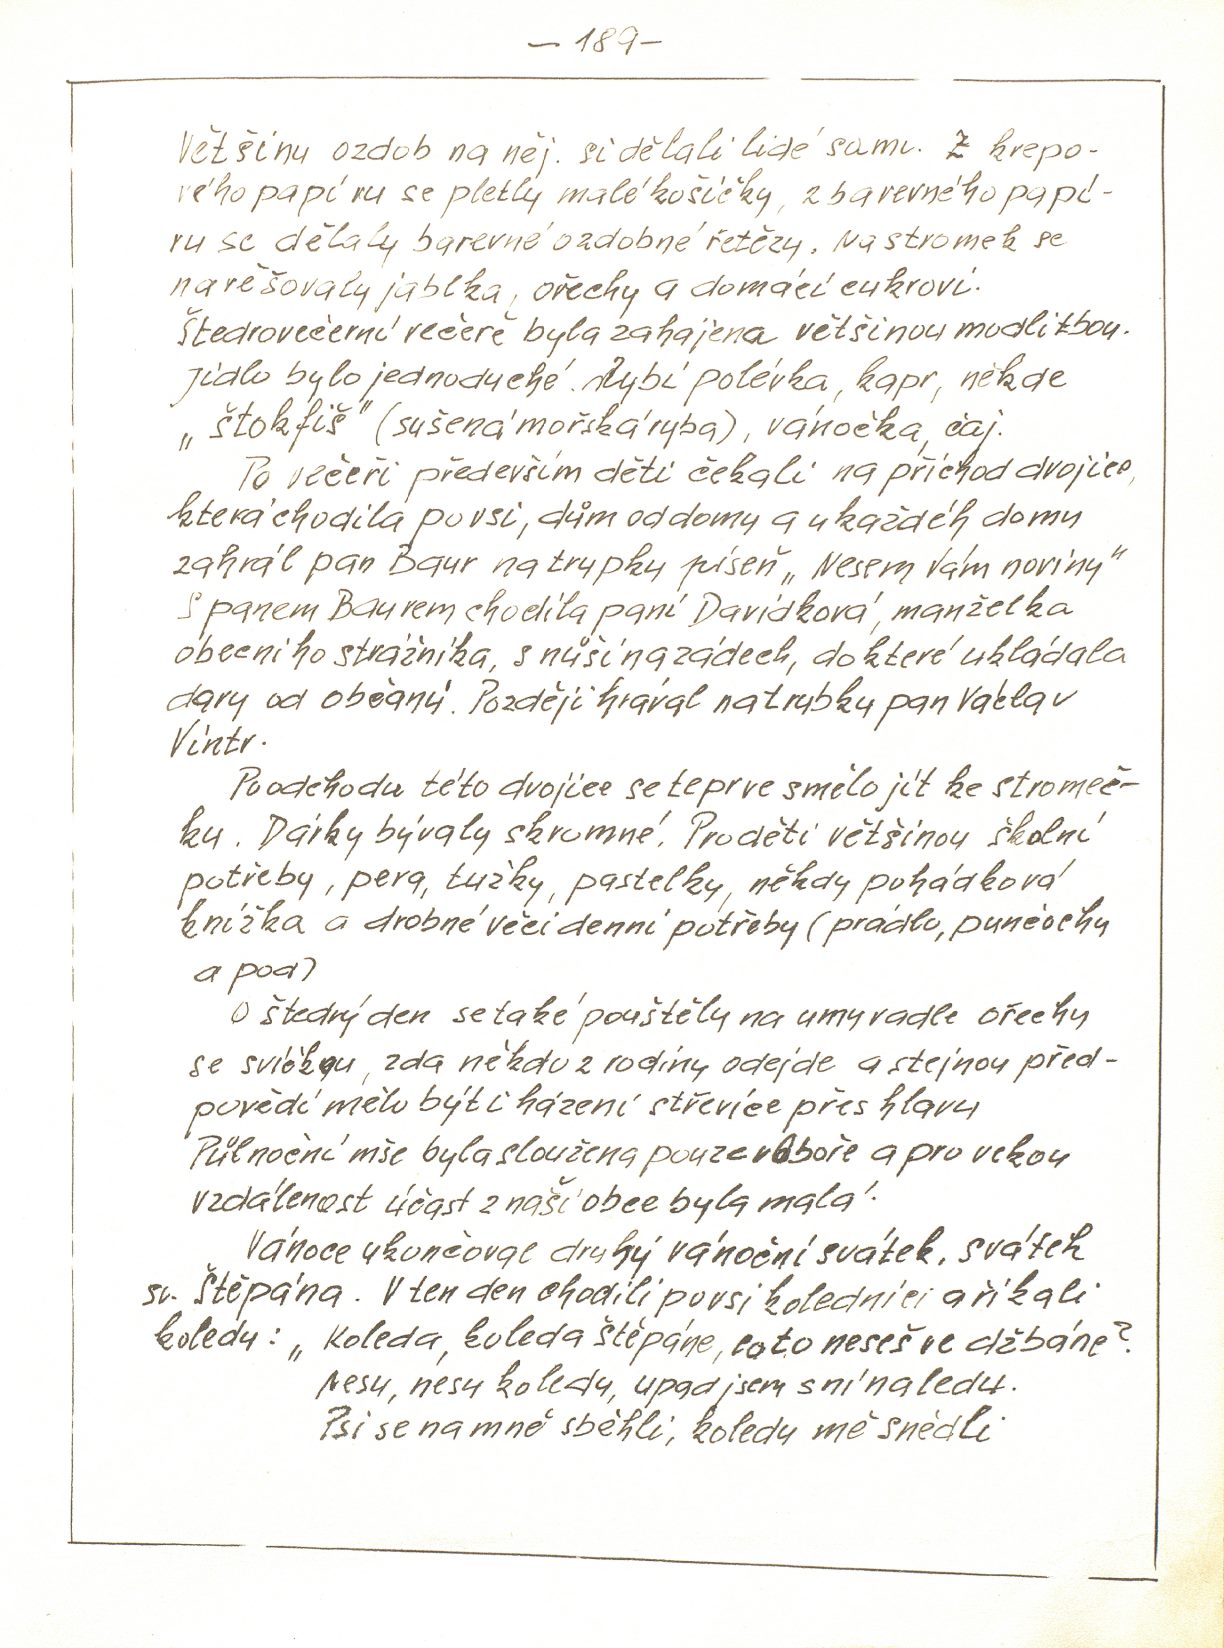 — 189 —
Většinu ozdob na něj. si dělali lidé sami. Z krepo-
vého papíru se pletly malé košíčky, z barevného papí-
ru se dělaly barevné ozdobné řetězy. Na stromek se
navěšovaly jablka, ořechy a domácí cukroví.
Štedrovečerní večeře byla zahájena většinou modlitbou.
Jídlo bylo jednoduché. Rybí polévka, kapr, někde
„štokfiš" (sušená mořská ryba), vánočka, čaj.
Po večeři především děti čekali na příchod dvojice,
která chodila po vsi, dům od domu a u každéh domu
zahrál pan Baur na trupku píseň „Nesem Vám noviny"
S panem Baurem chodila paní Davídková, manželka
obecního strážníka, s nůší na zádech, do které ukládala
dary od občanů. Později hrával na trubku pan Václav
Vintr.
Po odchodu této dvojice se teprve smělo jít ke stromeč-
ku. Dárky bývaly skromné. Pro děti většinou školní
potřeby, pera, tužky, pastelky, někdy pohádková
knížka a drobné věci denní potřeby (prádlo, punčochy
a pod)
O štedrý den se také pouštěly na umyvadle ořechy
se svíčkou, zda někdo z rodiny odejde a stejnou před-
povědí mělo být i házení střevíce přes hlavu
Půlnoční mše byla sloužena pouze v Oboře a pro vekou
vzdálenost účast z naší obce byla malá.
Vánoce ukončoval druhý vánoční svátek, svátek
sv. Štěpána. V ten den chodili po vsi koledníci a říkali
koledu: „Koleda, koleda štěpáne, co to neseš ve džbáne?
Nesu, nesu koledu, upad jsem s ní na ledu.
Psi se na mně sběhli, koledu mě snědli